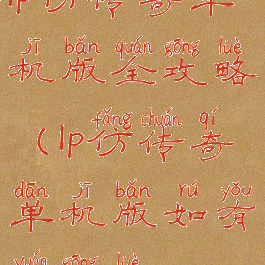 jī bǎn quán gōng lüè
机版全攻略
fǎng chuán qí
(lp仿传奇
dān jī bǎn rú yǒu
单机版如有